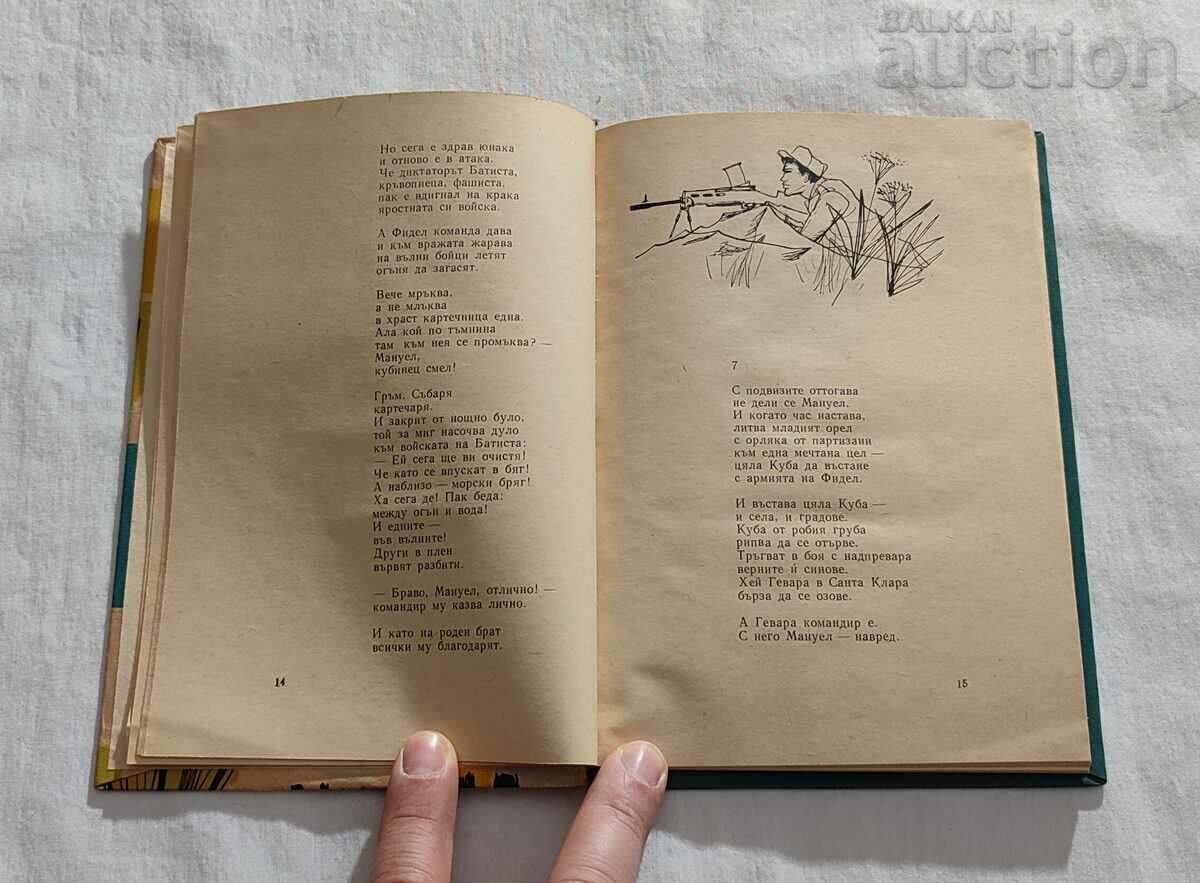 BALKAN
auction
Но сега е здрав юнака
и отново е в атака.
Че диктаторът Батиста,
кръвопиеца, фашиста,
пак е вдигнал на крака
яростната си войска.
А Фидел команда дава
и към вражата жарава
на вълни бойци летят
огъня да загасят.
Вече мръква,
а не млъква
в храст картечница една.
Ала кой по тъмнина
там към нея се промъква? —
Мануел,
кубинец смел!
Гръм. Събаря
картечаря.
И закрит от нощно було,
той за миг насочва дуло
към войската на Батиста:
— Ей сега ще ви очистя!
Че като се впускат в бяг!
А наблизо — морски бряг!
Ха сега де! Пак беда:
между огън и вода!
И едните —
във вълните!
Други в плен
вървят разбити.
— Браво, Мануел, отлично! —
командир му казва лично.
И като на роден брат
всички му благодарят.
14
7
С подвизите оттогава
не дели се Мануел.
И когато час настава,
литва младият орел
с орляка от партизани
към една мечтана цел —
цяла Куба да въстане
с армията на Фидел.
И въстава цяла Куба —
и села, и градове.
Куба от робия груба
рипва да се отърве.
Тръгват в боя с надпревара
верните ѝ синове.
Хей Гевара в Санта Клара
бърза да се озове.
А Гевара командир е.
С него Мануел — навред.
15